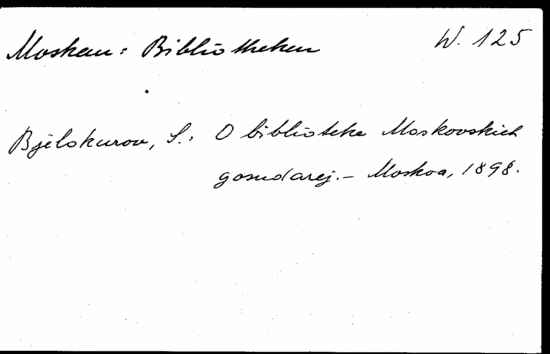 Moskau: Bibliotheken W. 125
Bjelokurov, S.: O biblioteke Moskovskich
gosudarej.– Moskva, 1898.